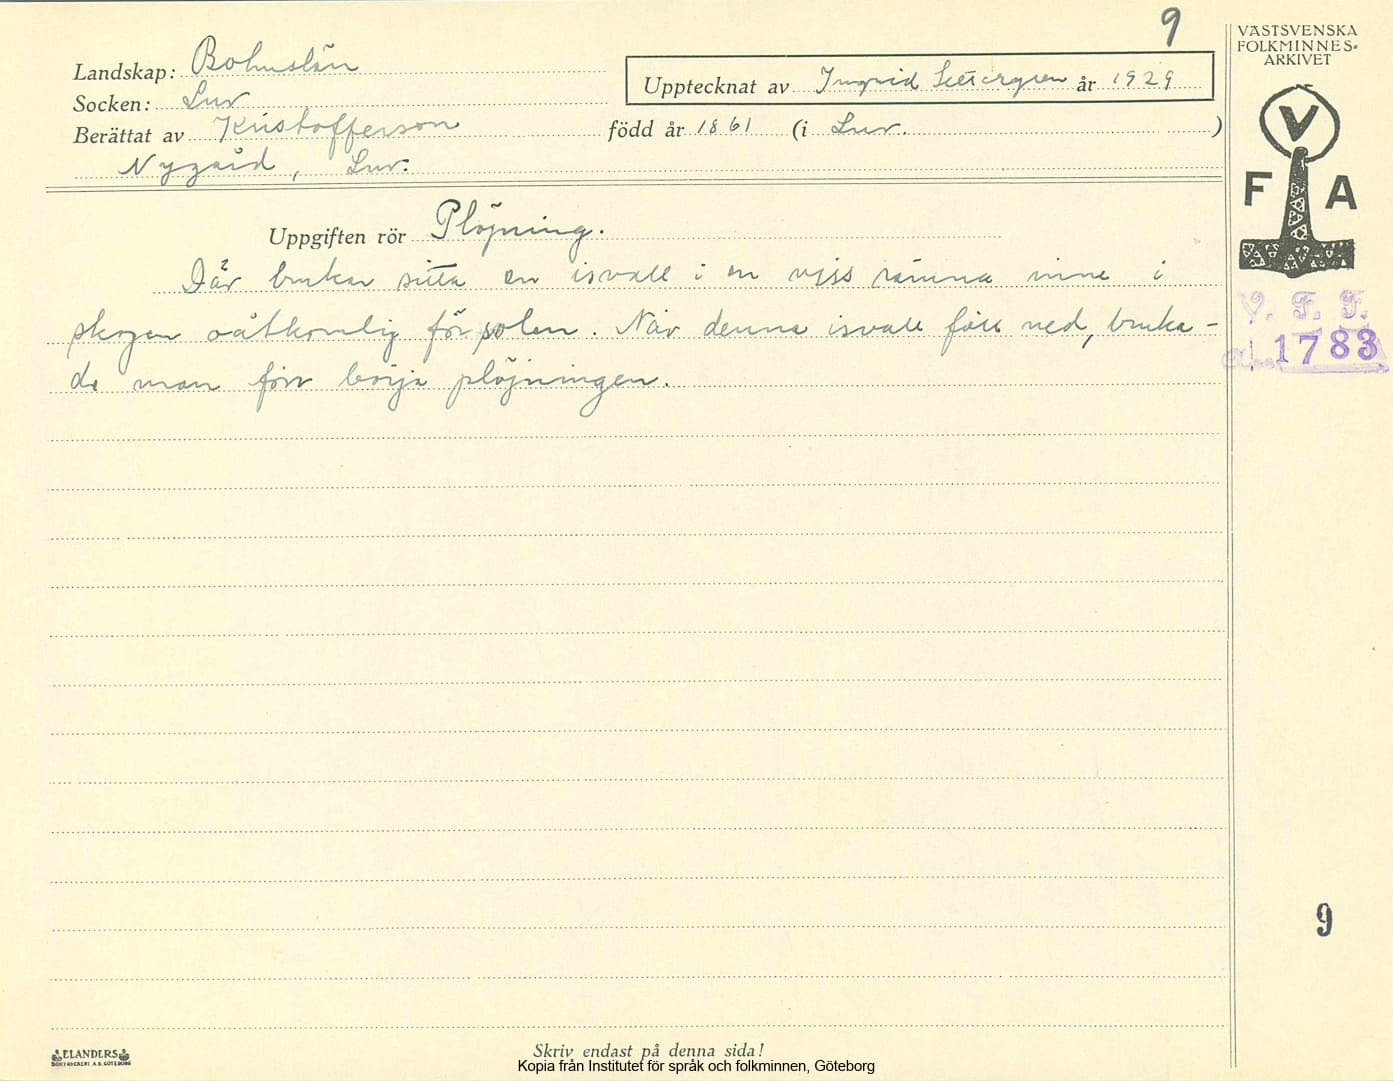 9
VÄSTSVENSKA
FOLKMINNES-
ARKIVET
Landskap: Bohuslän
Upptecknat av Ingrid Settergren år 1929
Socken: Lur
Berättat av Kristofferson född år 1861 (i Lur. )
Nygård, Lur.
V
F A
Uppgiften rör Plöjning.
Där brukar sitta en isvall i en viss rämna inne i
skogen oåtkomlig för solen. När denna isvall föll ned, bruka-
de man förr börja plöjningen.
V. F. F.
1783
9
ELANDERS
BOKTRYCKERI A.B. GÖTEBORG
Skriv endast på denna sida!
Kopia från Institutet för språk och folkminnen, Göteborg